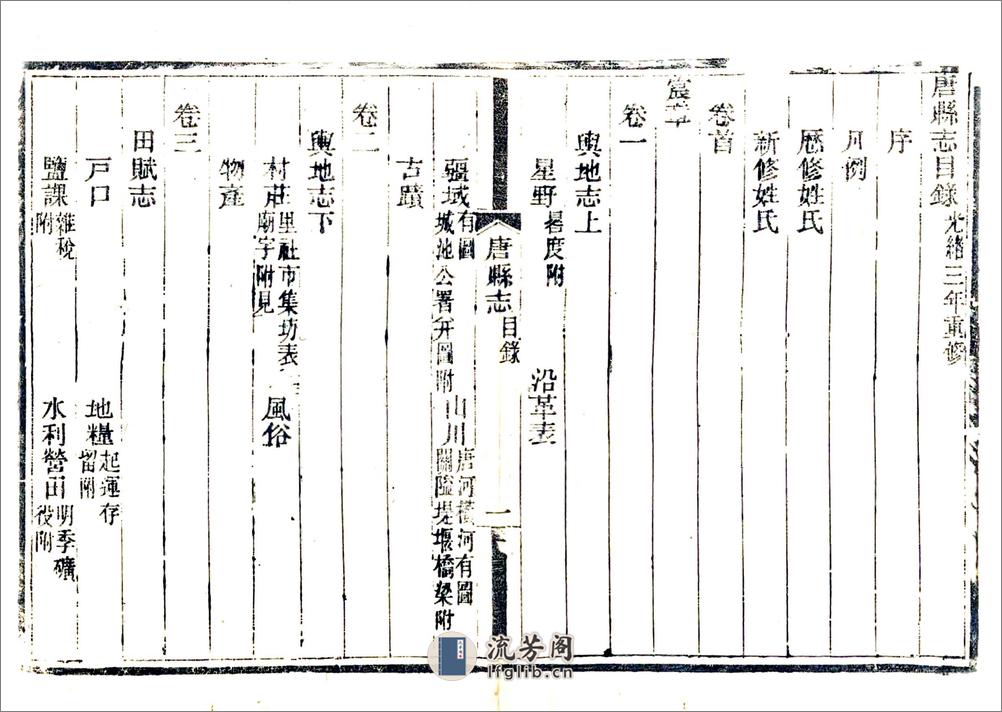 唐縣志目錄 光緒三年重修
序
凡例
歷修姓氏
新修姓氏
卷首
宸章
卷一
輿地志上
星野 晷度附 沿革表
唐縣志 目錄 一
疆域 有圖 城池公署有圖附 山川 唐河橫河有圖 關隘堤堰橋梁附
古蹟
卷二
輿地志下
村莊 里社市集坊表 廟宇附見 風俗
物產
卷三
田賦志
戸口 地糧 起運存 留附
鹽課 雜稅 附 水利營田 明季礦 役附
流芳阁
lfglib.cn